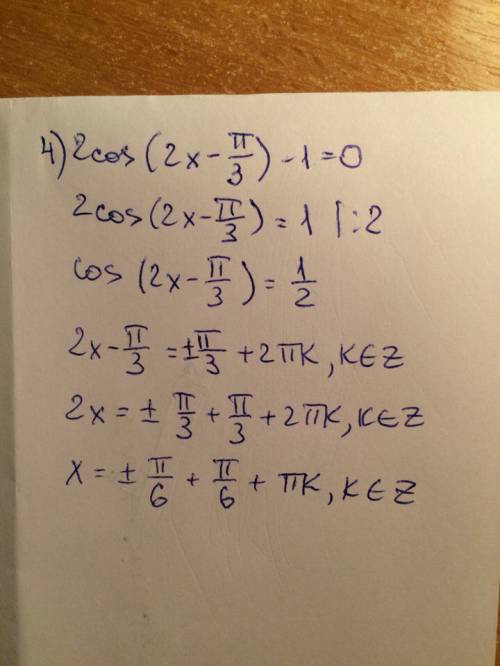 4) 2cos(2x-π/3)-1=0
2cos(2x-π/3)=1 |:2
cos(2x-π/3)=1/2
2x-π/3=±π/3+2πk, k∈Z
2x=±π/3+π/3+2πk, k∈Z
x=±π/6+π/6+πk, k∈Z